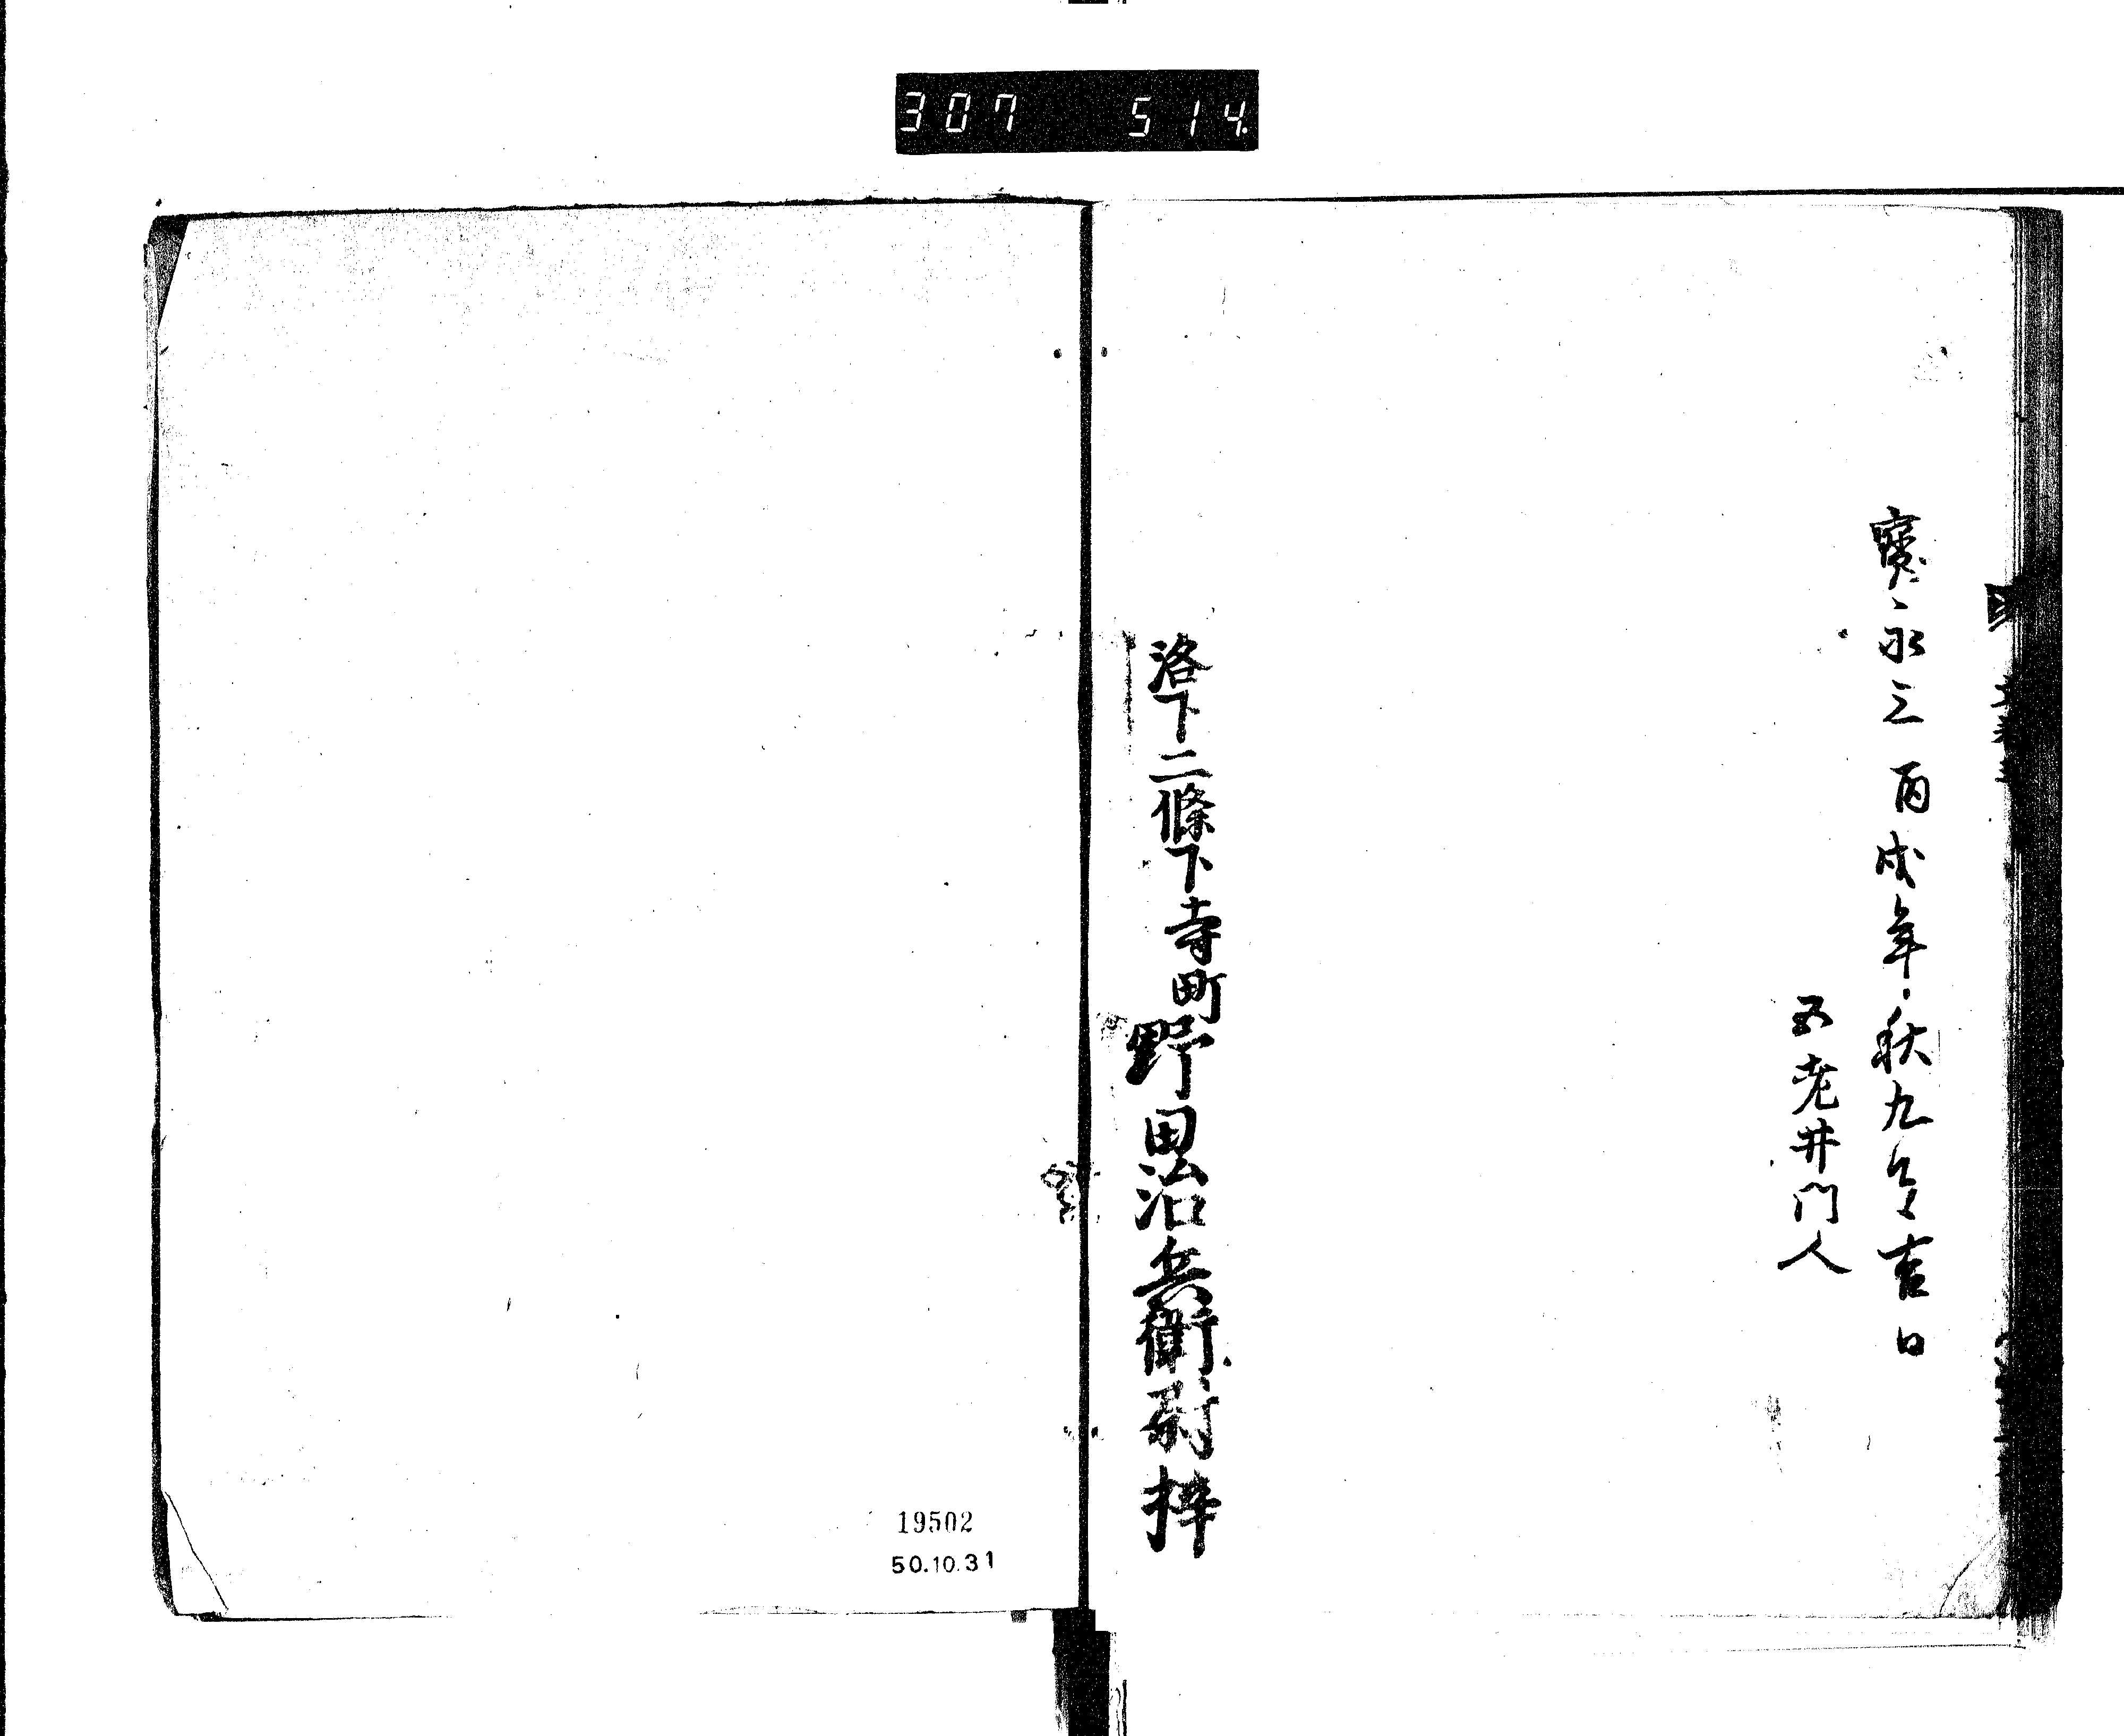 307 514
寳永三丙戌年秋九月吉日
五老井門人
洛下二條下寺町野田治兵衛尉梓
19502
50.10.31